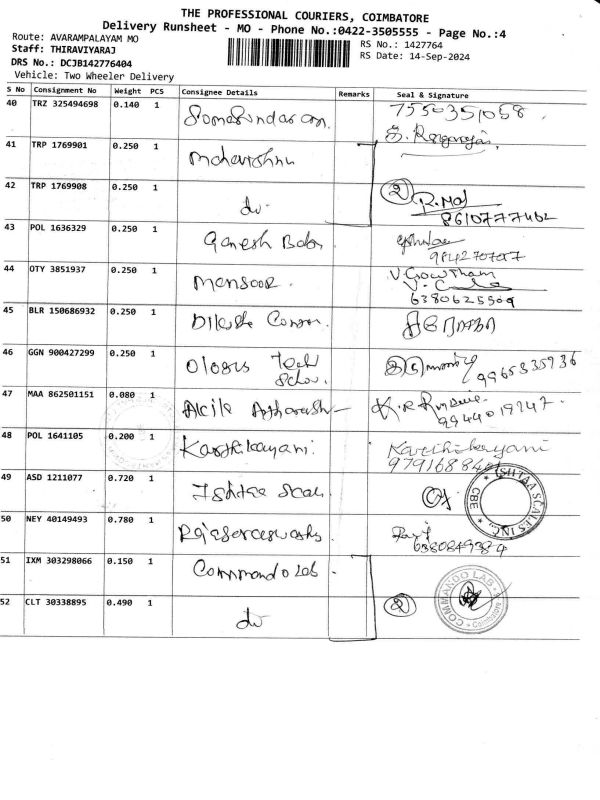 THE PROFESSIONAL COURIERS, COIMBATORE
Delivery Runsheet - MO - Phone No.:0422-3505555 - Page No.:4
Route: AVARAMPALAYAM MO
RS No.: 1427764
Staff: THIRAVIYARAJ
RS Date: 14-Sep-2024
DRS No.: DCJB142776404
Vehicle: Two Wheeler Delivery
S No Consignment No Weight PCS Consignee Details Remarks Seal & Signature
40 TRZ 325494698 0.140 1 Somasundaram. 7550351058.
41 TRP 1769901 0.250 1 Mahavishnu
42 TRP 1769908 0.250 1 do. 2 8610777462
43 POL 1636329 0.250 1 Ganesh Babu 9842707017
44 OTY 3851937 0.250 1 Mansoor. V Gowtham
6380625509
45 BLR 150686932 0.250 1
46 GGN 900427299 0.250 1 Tech 9965335936
47 MAA 862501151 0.080 1 Akila 9944019247.
48 POL 1641105 0.200 1 Karthikayani. Karthikayani
49 ASD 1211077 0.720 1 Ishtaa Scal ISHTAA SCALES INC CBE
50 NEY 40149493 0.780 1
51 IXM 303298066 0.150 1 Commando Lab
52 CLT 30338895 0.490 1 do 2 COMMANDO LAB Coimbatore